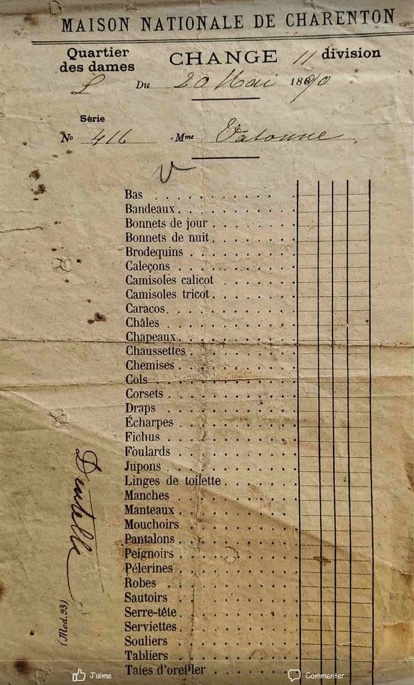 MAISON NATIONALE DE CHARENTON
Quartier des dames
CHANGE
11 division
L Du 20 Mai 1890
Série
No 416 Mme
Bas
Bandeaux
Bonnets de jour
Bonnets de nuit
Brodequins
Caleçons
Camisoles calicot
Camisoles tricot
Caracos
Châles
Chapeaux
Chaussettes
Chemises
Cols
Corsets
Draps
Écharpes
Fichus
Foulards
Jupons
Linges de toilette
Manches
Manteaux
Mouchoirs
Pantalons
Peignoirs
Pélerines
Robes
Sautoirs
Serre-tête
Serviettes
Souliers
Tabliers
Taies d'oreiller
Dentelle
(Mod. 93)
J'aime
Commenter